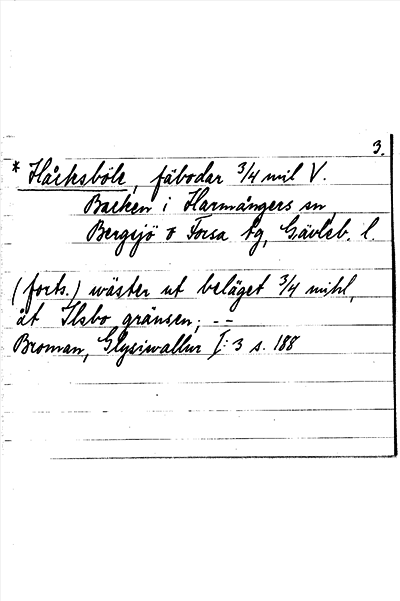 3.
* Håcksböle, fäbodar 3/4 mil V.
Backen i Harmångers sn,
Bergsjö o Forsa tg, Gävleb. l.
(forts.) wäster ut beläget 3/4 mihl,
åt Ilsbo gränsen; --
Broman, Glysiwallur I:3 s. 188